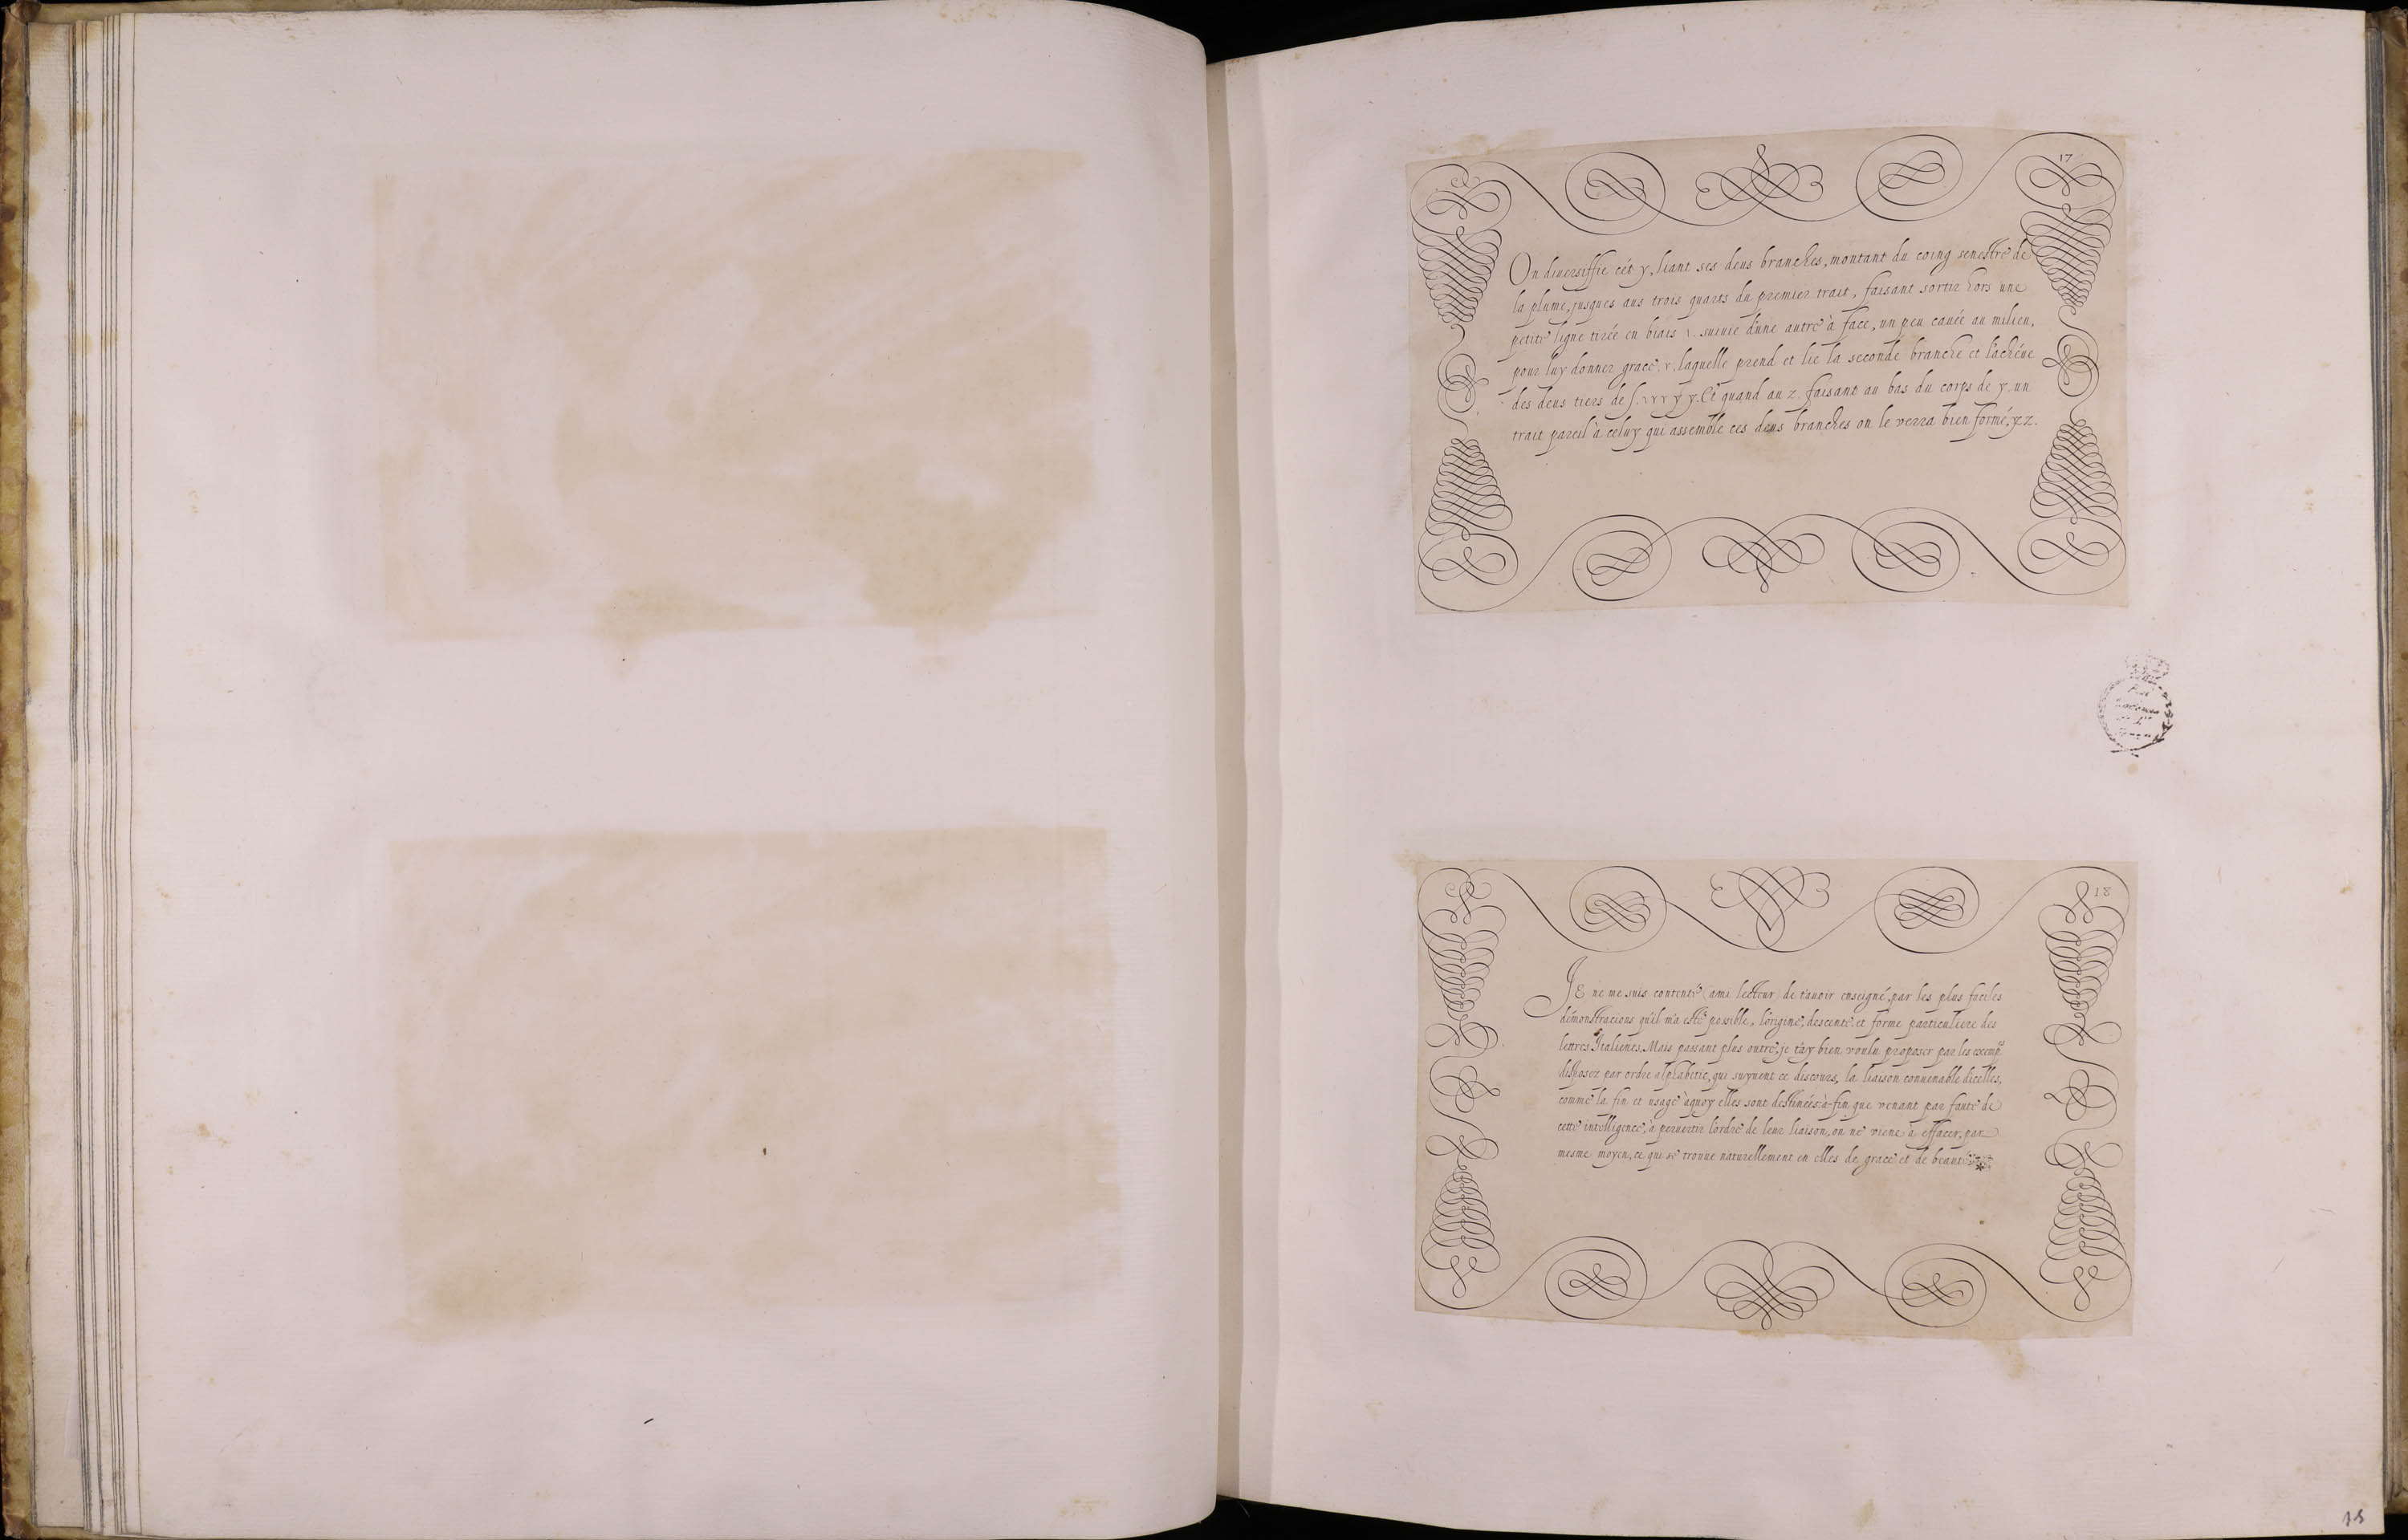 17
On diuersiffie cét y, liant ses deus branches, montant du coing senestre de
la plume, jusques aus trois quarts du premier trait, faisant sortir hors une
petite ligne tirée en biais ı. suiuie d'une autre à face, un peu cauée au milieu,
pour luy donner grace. r. laquelle prend et lie la seconde branche et l'achéue
des deus tiers de ſ. y y. Et quand au z. faisant au bas du corps de y. un
trait pareil à celuy qui assemble ces deus branches on le verra bien formé, y z.
18
JE ne me suis contenté (ami lecteur) de t'auoir enseigné, par les plus faciles
démonstracions qu'il m'a esté possible, l'origine, descente et forme particuliere des
lettres Italienes. Mais passant plus outre, je t'ay bien voulu proposer par les exemp.
disposez par ordre alphabetic, qui suyuent ce discours, la liaison conuenable d'icelles,
comme la fin et usage aquoy elles sont destinées: à-fin que venant par faute de
cette intelligence, à peruertir l'ordre de leur liaison, on ne viene à effacer, par
mesme moyen, ce qui se trouue naturellement en elles de grace et de beauté
18